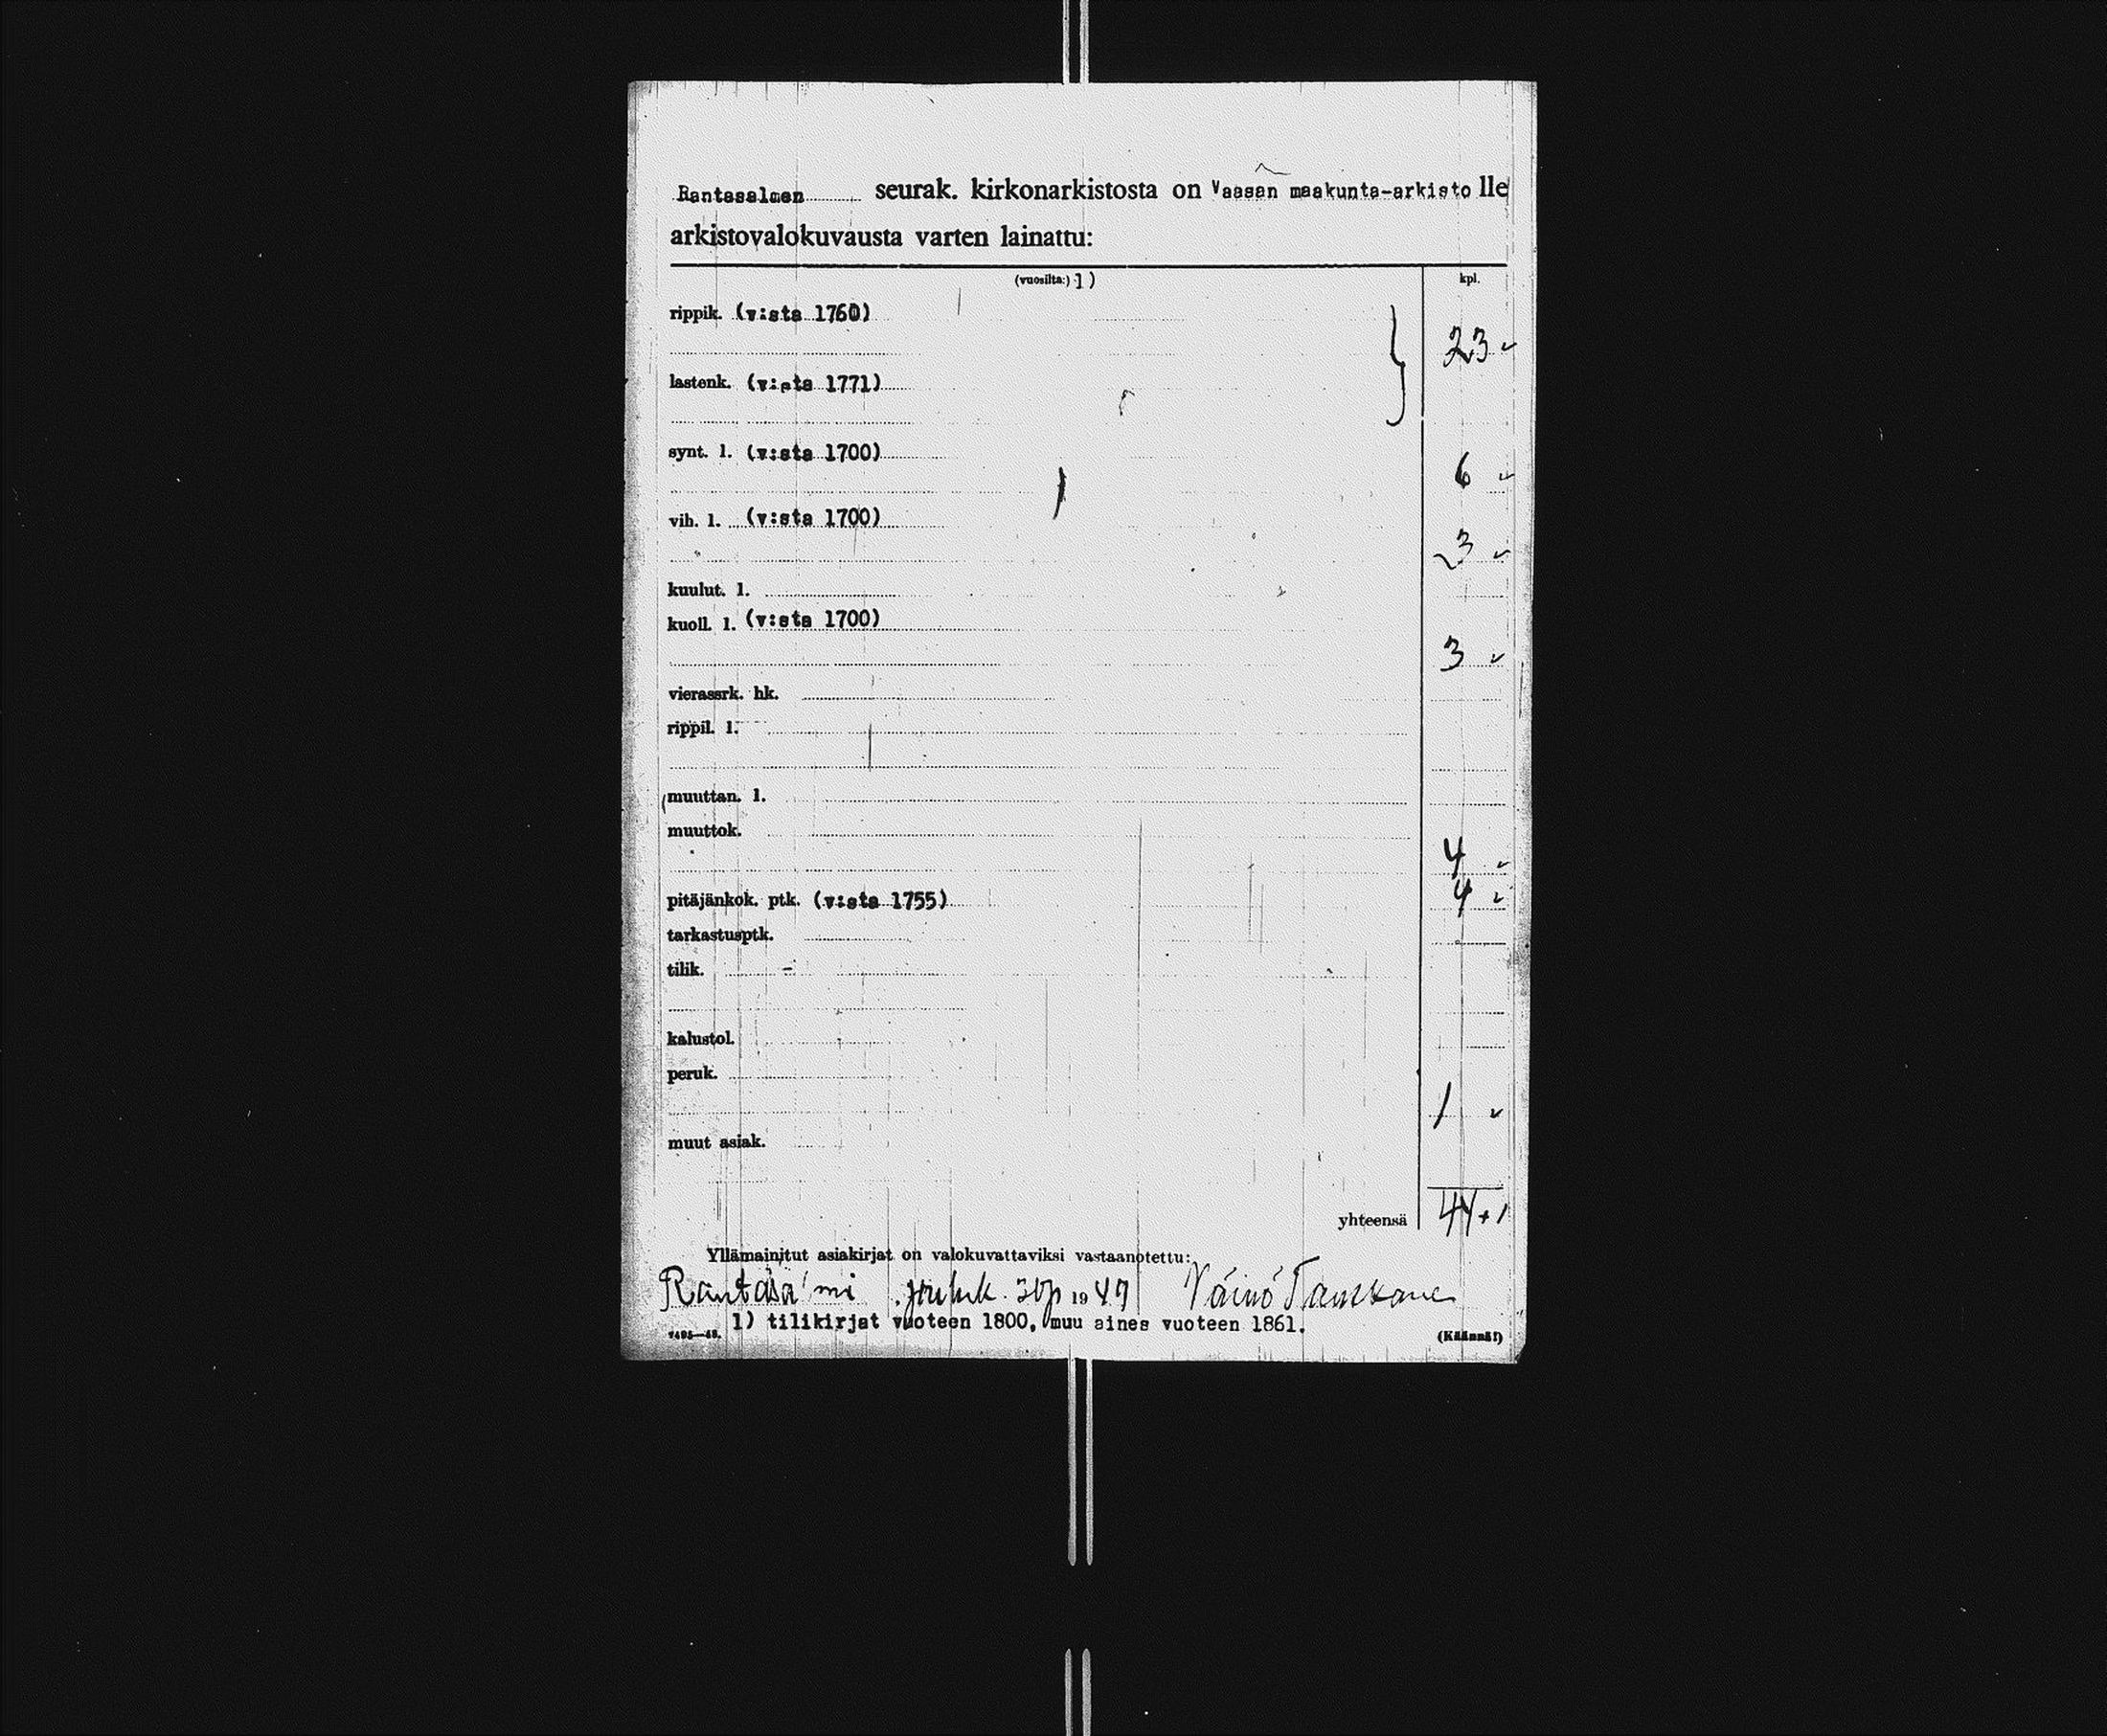 Rantasalmen seurak. kirkonarkistosta on Vaasan maakunta-arkisto lle
arkistovalokuvausta varten lainattu:
(vuosilta:) 1) kpl.
rippik. (v:sta 1760) 23
lastenk. (v:sta 1771)
synt. l. (v:sta 1700) 6
vih. l. (v:sta 1700) 3
kuulut. l.
kuoll. l. (v:sta 1700) 3
vierassrk. hk.
rippil. l.
muuttan. l.
muuttok. 4
pitäjänkok. ptk. (v:sta 1755) 4
tarkastusptk.
tilik.
kalustol.
peruk. 1
muut asiak.
yhteensä 44+1
Yllämainitut asiakirjat on valokuvattaviksi vastaanotettu:
Rantasalmi jouluk. 19 49 Väinö
1) tilikirjat vuoteen 1800, muu aines vuoteen 1861.
(Käännä!)